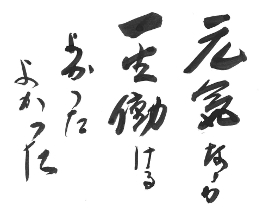 元気なら
一生働
ける
よかった
よかった